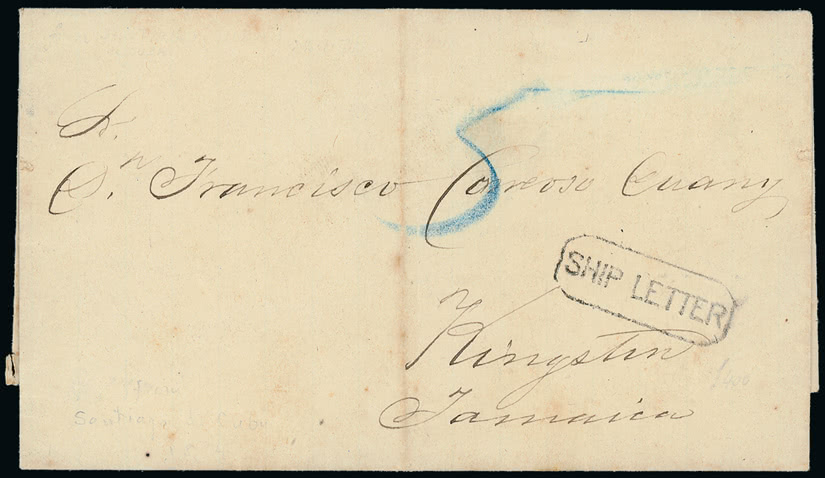 5
Sr.
Dn. Francisco Cardoso
SHIP LETTER
Kingston
Jamaica
from
Santiago Cuba